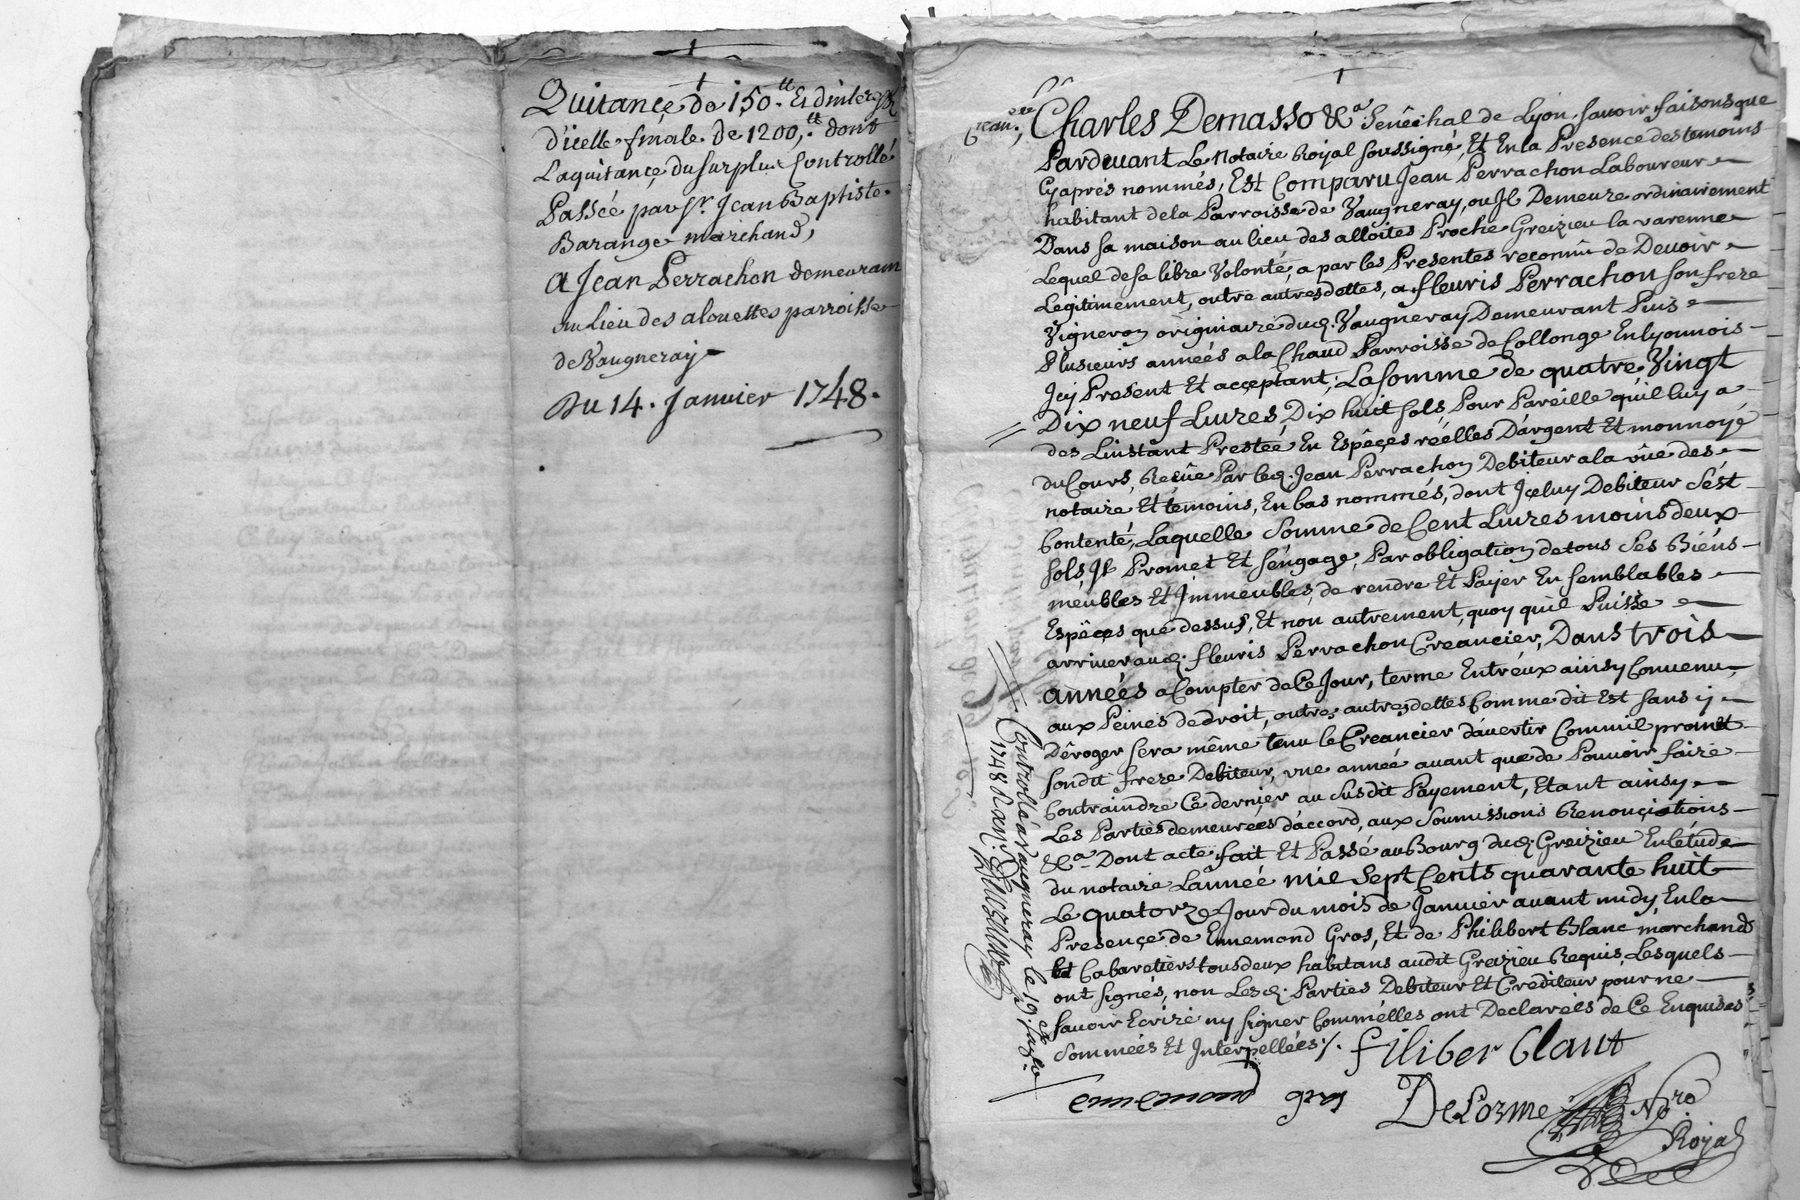 Quitance de 150.tt Et d'interest
d'icelle finale de 1200.tt dont
Laquitance du surplus Controllé
Passée par Sr. Jean Baptiste
Barange marchand,
A Jean Perrachon demeurant
au lieu des alouettes parroisse
de Vaugneray
Du 14. Janvier 1748.
Charles Demasso &a Senêchal de Lyon, savoir faisons que
Pardevant Le Notaire Roÿal soussigné, Et En la Presence des temoins
Cyaprés nommés, Est Comparu Jean Perrachon Laboureur
habitant de la Parroisse de Vaugneray, ou Jl Demeure ordinairement
Dans sa maison au lieu des alloües Proche Greizieu la varenne
Lequel de sa libre Volonté, a par les Presentes reconnu de Devoir
Legitimement, outre autres dettes, a fleuris Perrachon son frere
Vigneron originaire dud. Vaugneray Demeurant Puis
Plusieurs années a la Chaud Parroisse de Collonge En lyonnois
Jcy Present Et acceptant, La somme de quatre Vingt
Dix neuf Livres, Dix huit sols, Pour Pareille qu'il luy a
des L'instant Prestée En Espêçes réelles D'argent Et monnoyé
du Cours, Reçüe Par led. Jean Perrachon Debiteur a la vüe des
notaire Et temoins, En bas nommés, dont Jceluy Debiteur S'est
Contenté, Laquelle Somme de Cent Livres moins deux
sols, Jl Promet Et s'engage, Par obligation de tous Ses Biéns
meubles Et Jmmeubles, de rendre Et Paÿer En semblables
Espêçes que dessus, Et non autrement, quoy qu'il Puisse
arriver aud. fleuris Perrachon Creancier, Dans trois
années a Compter de Ce Jour, terme Entréux ainsy Convenu,
aux Peines de droit, outre autres dettes Comme dit Est sans y
Dêroger sera même tenu le Creancier d'avertir Comm'il promet
sondit frere Debiteur, une année avant que de Pouvoir faire
Contraindre Ce dernier au susdit Payement, Etant ainsy
Les Parties demeurées d'accord, aux Soumissions Renonçiations
&a. Dont acte fait Et Passé au Bourg dud. Greizieu En l'étude
du notaire L'année mil Sept Cents quarante huit
Le quatorze Jour du mois de Janvier avant midy En la
Presençe de Ennemond Gros, Et de Philibert Blanc marchands
Et Cabaretiers tous deux habitans audit Greizieu Requis, Lesquels
ont signés, non Lesd. Parties Debiteur Et Créditeur pour ne
savoir Ecrire ny signer Comm'elles ont Declarées de Ce Enquises
Sommées Et Interpellées ./.
filiber blant
ennemond gros
DeLorme Nre
Roÿal
Controllé a Vaugneray le 19.
1748